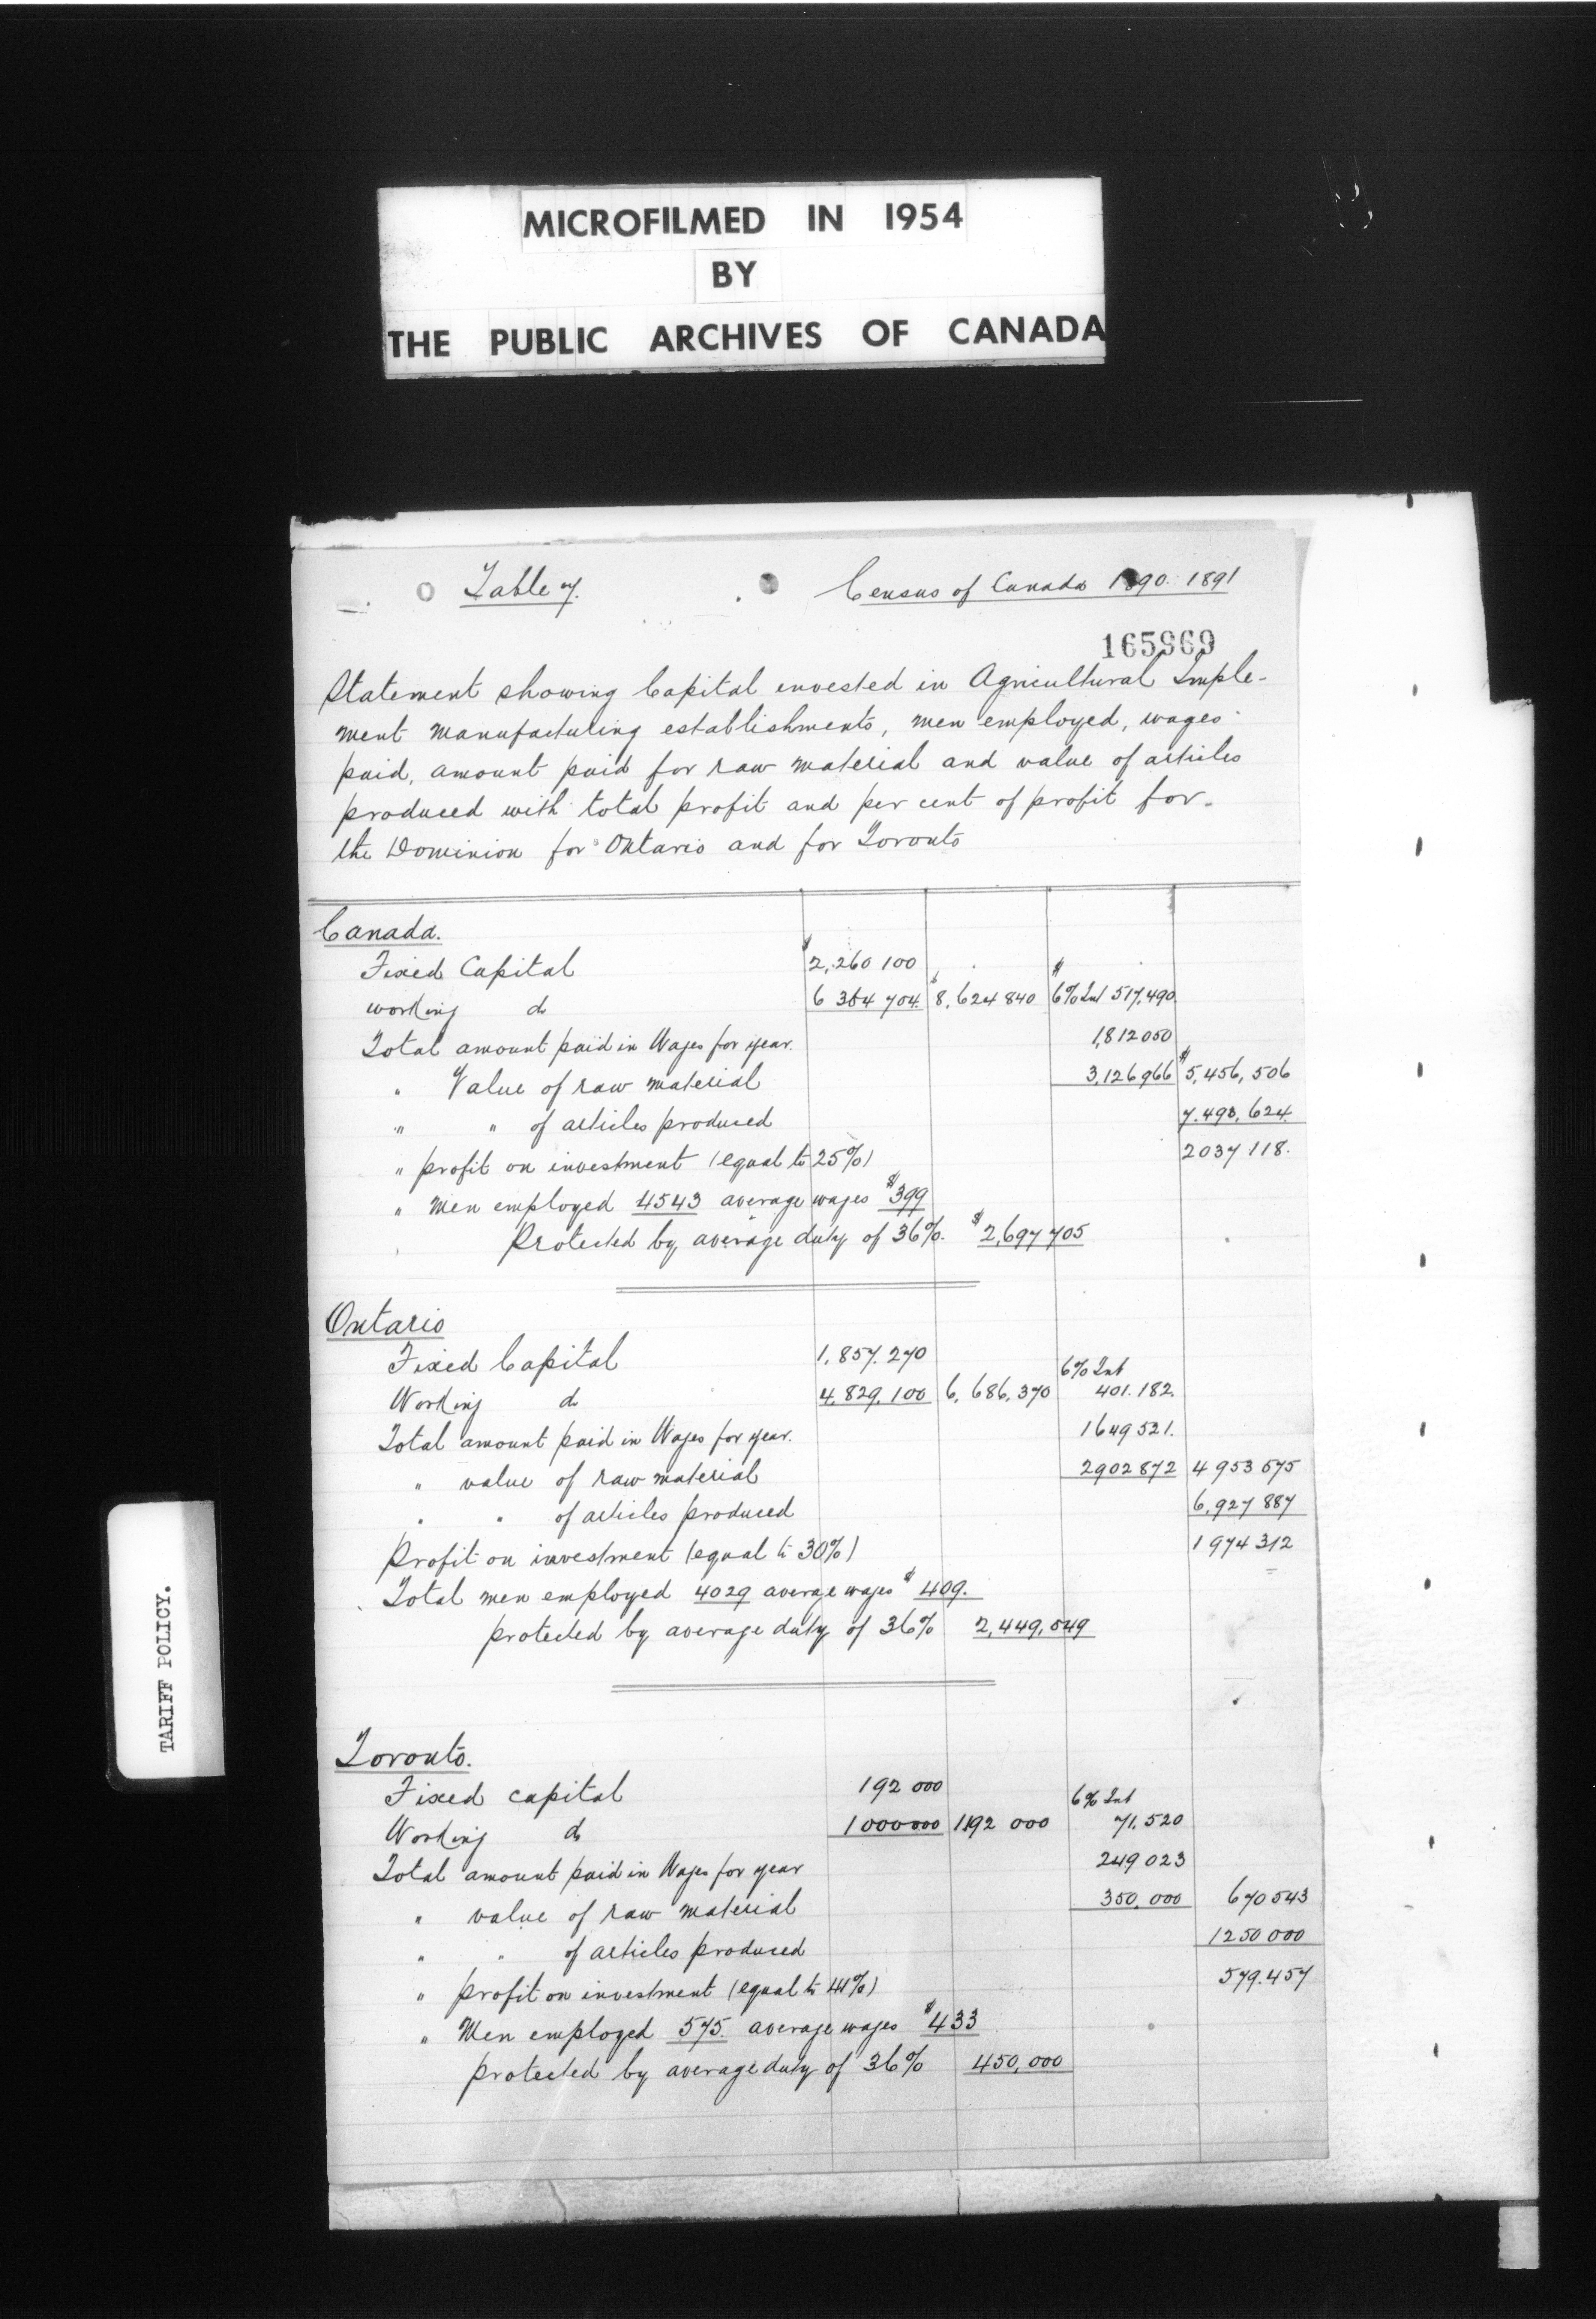 MICROFILMED IN 1954
BY
THE PUBLIC ARCHIVES OF CANADA
Table 7. Census of Canada 1890. 1891
165969
Statement showing Capital invested in Agricultural Imple-
ment manufacturing establishments, men employed, wages
paid, amount paid for raw material and value of articles
produced with total profit and per cent of profit for
the Dominion for Ontario and for Toronto
Canada.
Fixed Capital $2,260 100
working do 6 364 704. $8,624 840 6% Int $517,490
Total amount paid in Wages for year. 1,812 050
" Value of raw material 3,126 966 $5,456,506
" " of articles produced 7.493,624.
" profit on investment (equal to 25%) 2 037 118.
" Men employed 4543 average wages $399
Protected by average duty of 36%. $2,697 705
Ontario
Fixed Capital 1,857.270
6% Int
Working do 4,829,100 6,686,370 401.182.
Total amount paid in Wages for year. 1 649 521.
" value of raw material 2 902 872 4 953 575
" " of articles produced 6,927 887
Profit on investment (equal to 30%) 1 974 312
Total men employed 4029 average wages $409.
protected by average duty of 36% 2,449,549
TARIFF POLICY.
Toronto.
Fixed capital 192 000
6% Int
Working do 1 000 000 1192 000 71,520
Total amount paid in Wages for year 249 023
" value of raw material 350,000 670 543
" " of articles produced 1 250 000
" profit on investment (equal to 41%) 579.457
" Men employed 575. average wages $433
protected by average duty of 36% 450,000